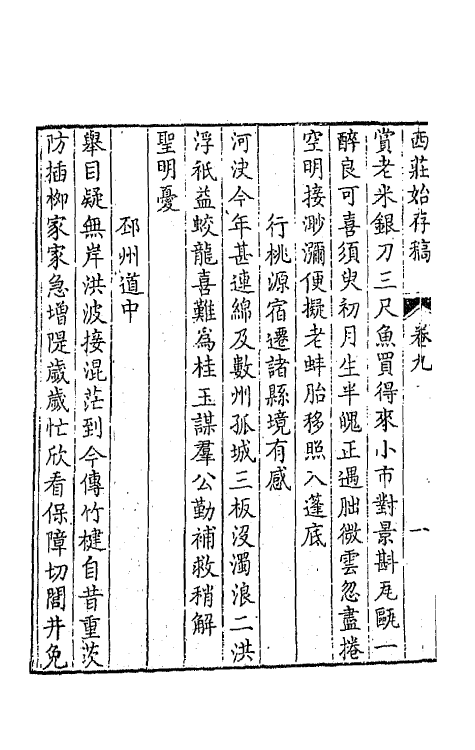 西莊始存稿　卷九　一
賞老米銀刀三尺魚買得來小市對景斟瓦甌一
醉良可喜須臾初月生半魄正遇朏微雲忽盡捲
空明接渺瀰便擬老蚌胎移照入蓬底
行桃源宿遷諸縣境有感
河決今年甚連綿及數州孤城三板沒濁浪二洪
浮祇益蛟龍喜難爲桂玉謀羣公勤補救稍解
聖明憂
邳州道中
舉目疑無岸洪波接混茫到今傳竹楗自昔重茨
防插柳家家急增隄歲歲忙欣看保障切閭井免